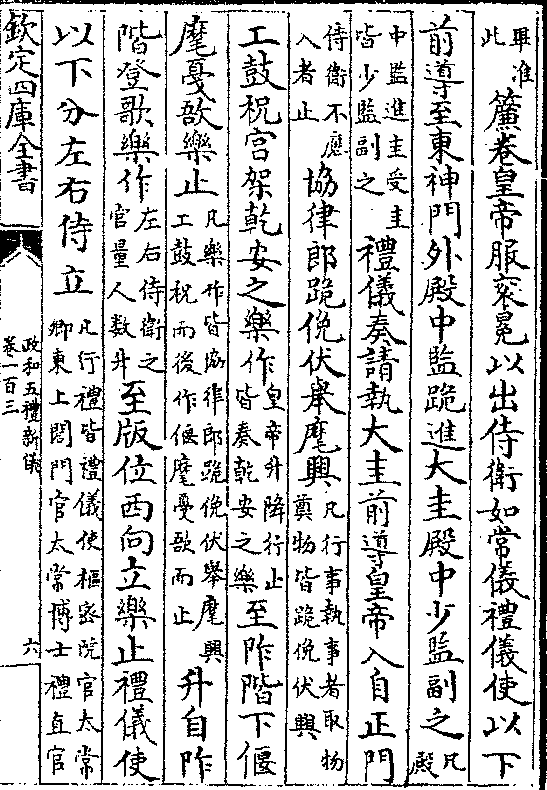 畢准此簾卷皇帝服衮冕以出侍衛如常儀禮儀使以下
前導至東神門外殿中監跪進大圭殿中少監副之凡殿
中監進圭受圭皆少監副之禮儀奏請執大圭前導皇帝入自正門
侍衛不應入者止協律郎跪俛伏舉麾興凡行事執事者取物奠物皆跪俛伏興
工鼓柷宫架乾安之樂作皇帝升降行止皆奏乾安之樂至阼階下偃
麾戞敔樂止凡樂作皆協律郎跪俛伏舉麾興工鼓柷而後作偃麾戞敔而止升自阼
階登歌樂作左右侍衛之官量人數升至版位西向立樂止禮儀使
以下分左右侍立凡行禮皆禮儀使樞密院官太常卿東上閤門官太常博士禮直官
欽定四庫全書
政和五禮新儀
卷一百三
六